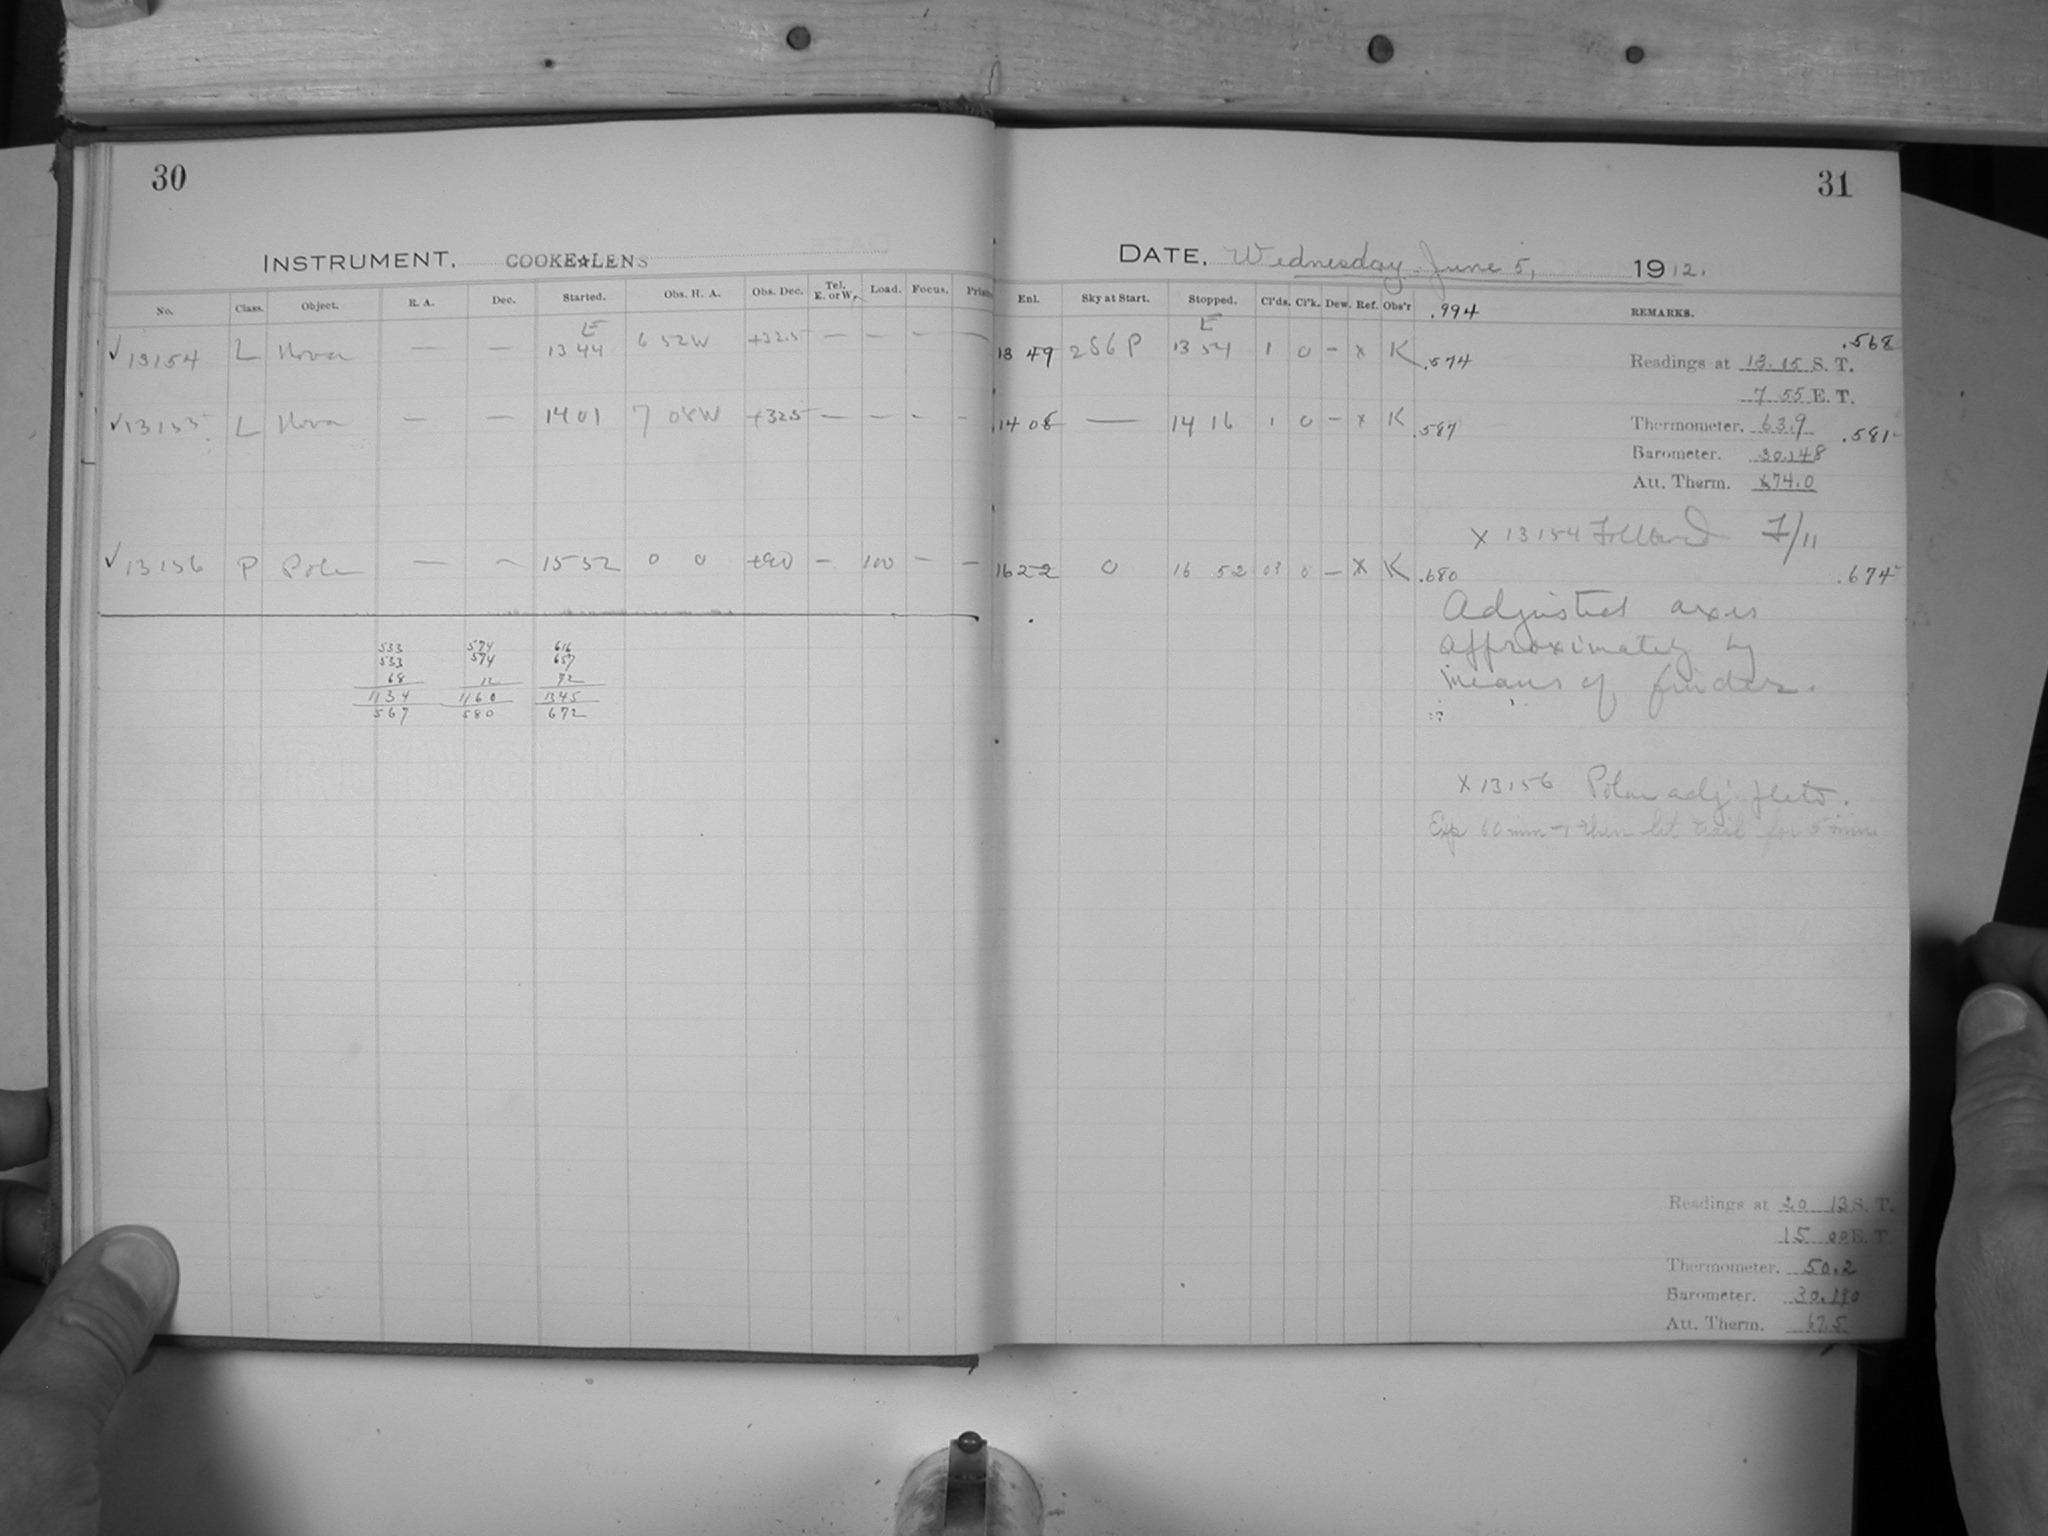 30
INSTRUMENT. COOKE☆LENS
No. Class. Object. R. A. Dec. Started. Obs. H. A. Obs. Dec. Tel. E. or W. Load. Focus.
E
✓13154 L Nova — — 13 44 6 52W +32.5 — — — —
✓13155 L Nova — — 14 01 7 08W +32.5 — — - -
✓13156 P Pole — — 15 52 0 0 +90 — 100 — —
533 574 616
533 574 657
68 12 72
1134 1160 1345
567 580 672
31
DATE, Wednesday, June 5, 1912.
Enl. Sky at Start. Stopped. Cl'ds. Cl'k. Dew. Ref. Obs'r .994 REMARKS.
E
13 49 2S6P 13 54 1 0 — x K .574 .568
Readings at 13.15 S. T.
7 55 E. T.
14 08 — 14 16 1 0 — x K .587 .581
Thermometer. 63.9
Barometer. 30.148
Att. Therm. 74.0
x 13154 Followed F/11
16 22 0 16 52 03 0 — x K .680 .674
Adjusted axis
approximately by
means of finder.
x 13156 Polar adj. plate.
Exp 60 min - then let trail for 5 mins
Readings at 20 13 S. T.
15 00 E. T.
Thermometer. 50.2
Barometer. 30.190
Att. Therm. 67.5